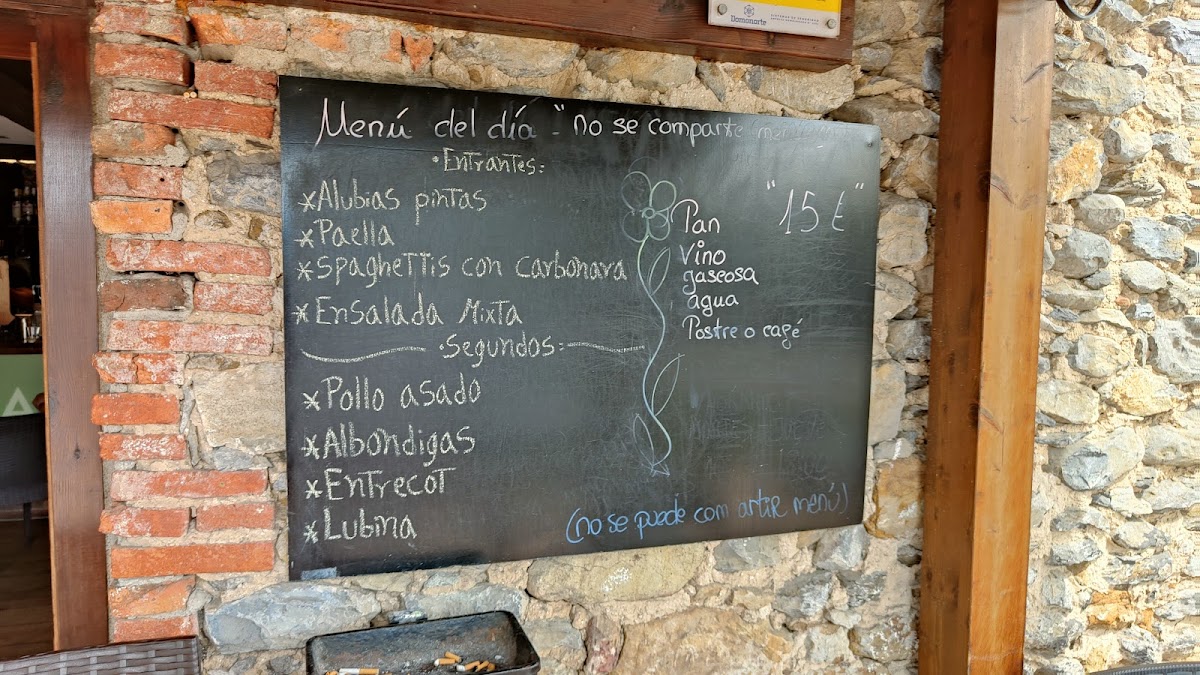 Domonorte
Menú del día - "no se comparte
·Entrantes:
*Alubias pintas
*Paella
*Spaghettis con carbonara
*Ensalada Mixta
·Segundos:
*Pollo asado
*Albondigas
*Entrecot
*Lubina
"15€"
Pan
Vino
gaseosa
agua
Postre o café
(no se puede com artir menú)